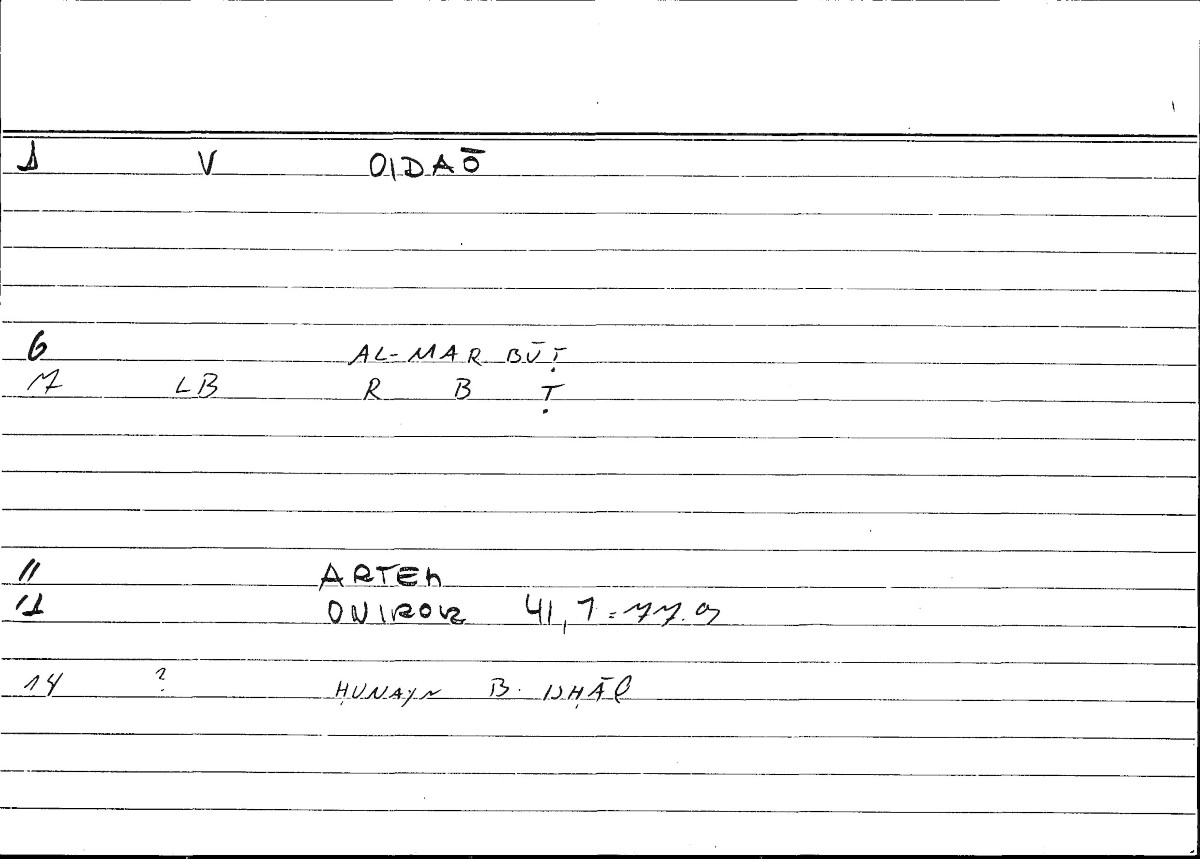 1 V OIDAŌ
6 AL-MARBŪṬ
7 LB R B Ṭ
11 ARTEM
12 ONIROK 41,1 = 77.9
14 ? ḤUNAYN B. ISḤĀQ